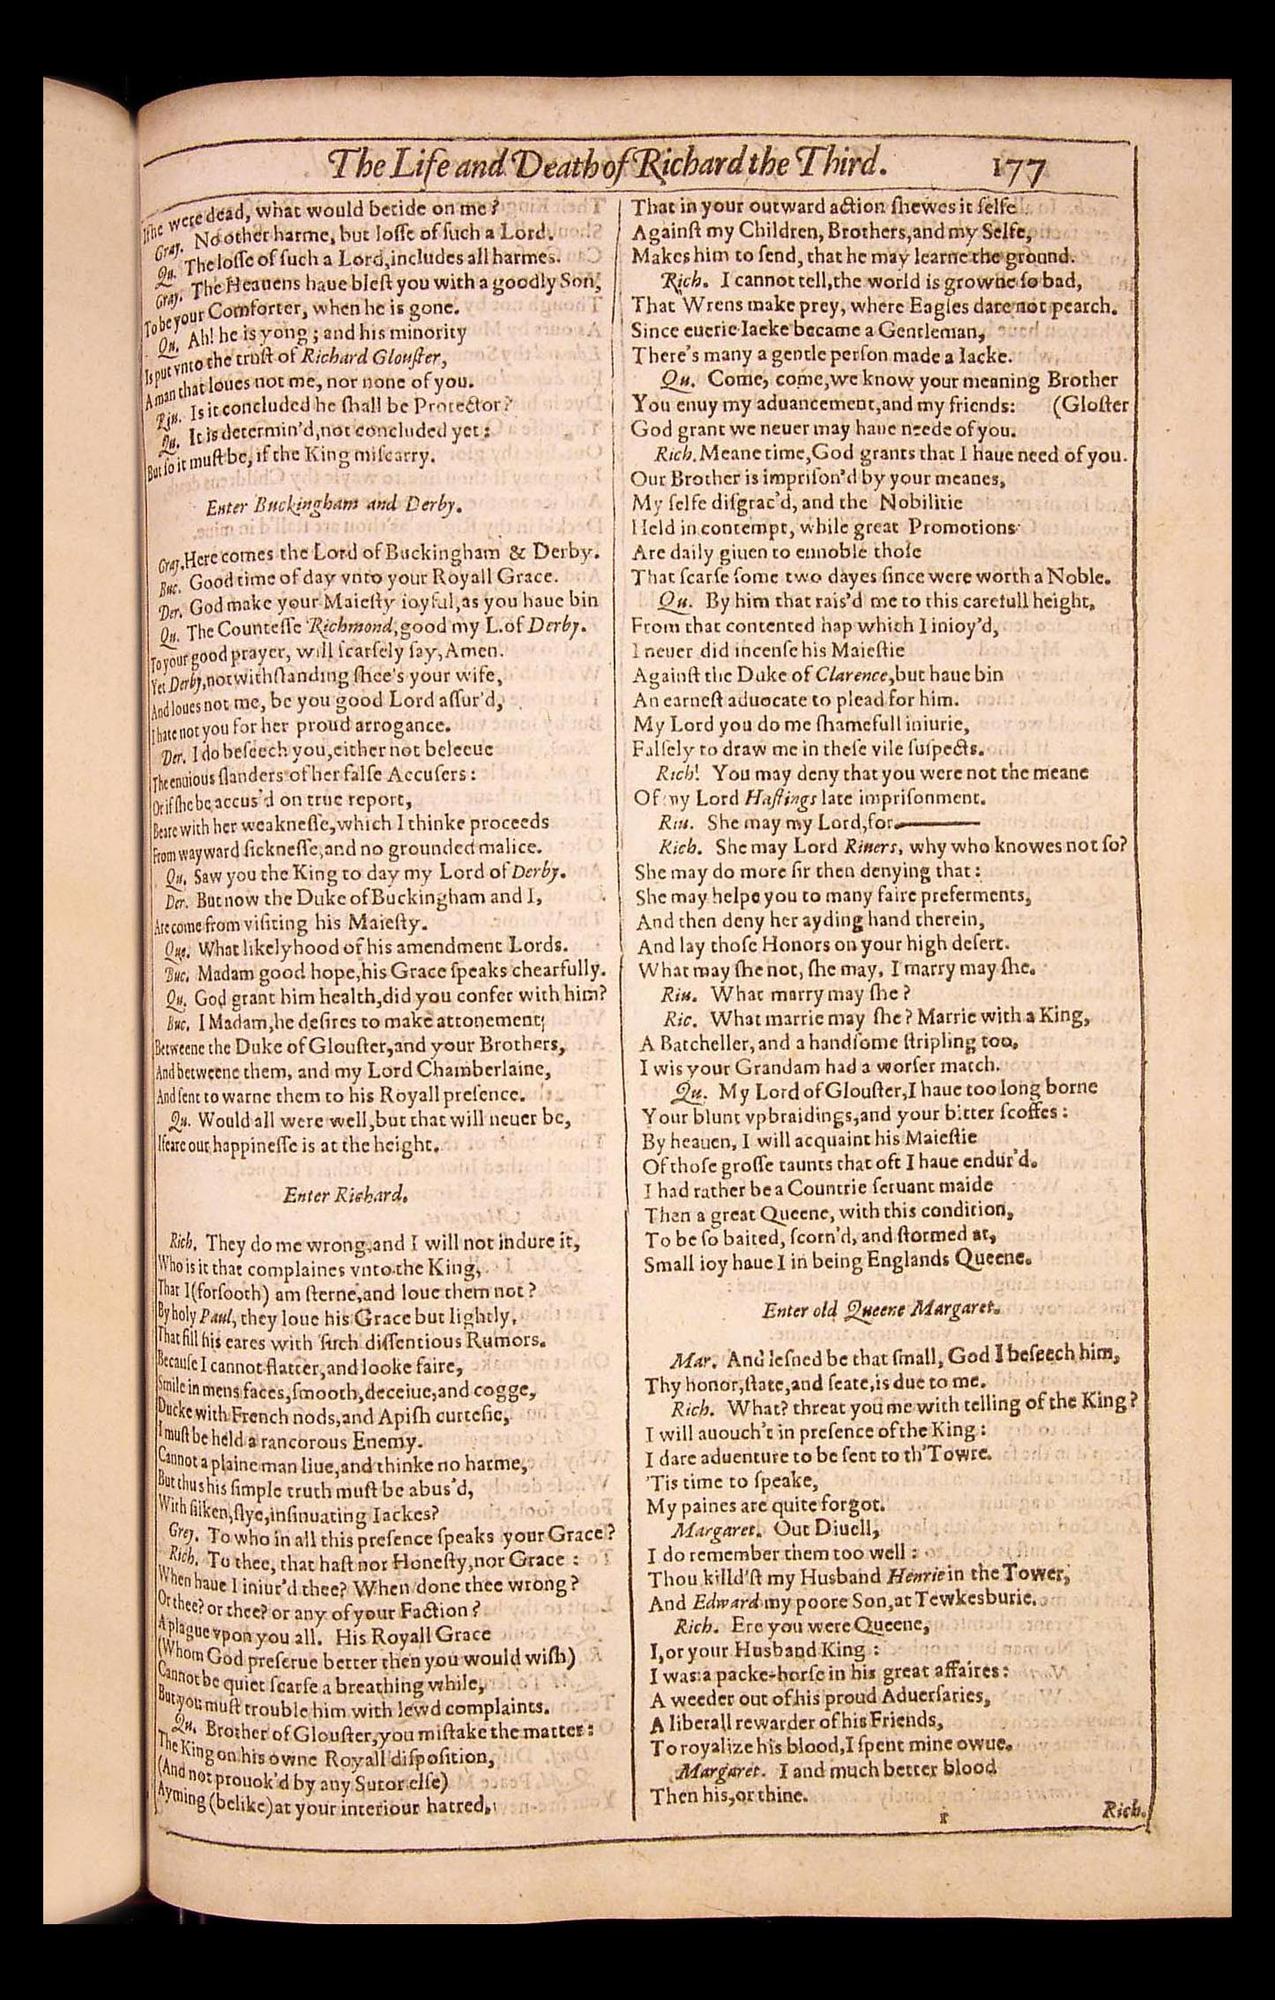 The Life and Death of Richard the Third. 177
If he were dead, what would betide on me?
Gray. No other harme, but losse of such a Lord.
Qu. The losse of such a Lord, includes all harmes.
Gray. The Heauens haue blest you with a goodly Son,
To be your Comforter, when he is gone.
Qu. Ah! he is yong; and his minority
Is put vnto the trust of Richard Glouster,
A man that loues not me, nor none of you.
Riu. Is it concluded he shall be Protector?
Qu. It is determin'd, not concluded yet:
But so it must be, if the King miscarry.
Enter Buckingham and Derby.
Gray. Here comes the Lord of Buckingham & Derby.
Buc. Good time of day vnto your Royall Grace.
Der. God make your Maiesty ioyful, as you haue bin
Qu. The Countesse Richmond, good my L. of Derby.
To your good prayer, will scarsely say, Amen.
Yet Derby, notwithstanding shee's your wife,
And loues not me, be you good Lord assur'd,
I hate not you for her proud arrogance.
Der. I do beseech you, either not beleeue
The enuious slanders of her false Accusers:
Or if she be accus'd on true report,
Beare with her weaknesse, which I thinke proceeds
From wayward sicknesse, and no grounded malice.
Qu. Saw you the King to day my Lord of Derby.
Der. But now the Duke of Buckingham and I,
Are come from visiting his Maiesty.
Que. What likelyhood of his amendment Lords.
Buc. Madam good hope, his Grace speaks chearfully.
Qu. God grant him health, did you confer with him?
Buc. I Madam, he desires to make attonement
Betweene the Duke of Glouster, and your Brothers,
And betweene them, and my Lord Chamberlaine,
And sent to warne them to his Royall presence.
Qu. Would all were well, but that will neuer be,
I feare our happinesse is at the height.
Enter Richard.
Rich. They do me wrong, and I will not indure it,
Who is it that complaines vnto the King,
That I (forsooth) am sterne, and loue them not?
By holy Paul, they loue his Grace but lightly,
That fill his eares with such dissentious Rumors.
Because I cannot flatter, and looke faire,
Smile in mens faces, smooth, deceiue, and cogge,
Ducke with French nods, and Apish curtesie,
I must be held a rancorous Enemy.
Cannot a plaine man liue, and thinke no harme,
But thus his simple truth must be abus'd,
With silken, slye, insinuating Iackes?
Grey. To who in all this presence speaks your Grace?
Rich. To thee, that hast nor Honesty, nor Grace:
When haue I iniur'd thee? When done thee wrong?
Or thee? or thee? or any of your Faction?
A plague vpon you all. His Royall Grace
(Whom God preserue better then you would wish)
Cannot be quiet scarse a breathing while,
But you must trouble him with lewd complaints.
Qu. Brother of Glouster, you mistake the matter:
The King on his owne Royall disposition,
(And not prouok'd by any Sutor else)
Ayming (belike) at your interiour hatred,
That in your outward action shewes it selfe
Against my Children, Brothers, and my Selfe,
Makes him to send, that he may learne the ground.
Rich. I cannot tell, the world is growne so bad,
That Wrens make prey, where Eagles dare not pearch.
Since euerie Iacke became a Gentleman,
There's many a gentle person made a Iacke.
Qu. Come, come, we know your meaning Brother
You enuy my aduancement, and my friends: (Gloster
God grant we neuer may haue neede of you.
Rich. Meane time, God grants that I haue need of you.
Our Brother is imprison'd by your meanes,
My selfe disgrac'd, and the Nobilitie
Held in contempt, while great Promotions
Are daily giuen to ennoble those
That scarse some two dayes since were worth a Noble.
Qu. By him that rais'd me to this carefull height,
From that contented hap which I inioy'd,
I neuer did incense his Maiestie
Against the Duke of Clarence, but haue bin
An earnest aduocate to plead for him.
My Lord you do me shamefull iniurie,
Falsely to draw me in these vile suspects.
Rich. You may deny that you were not the meane
Of my Lord Hastings late imprisonment.
Riu. She may my Lord, for———
Rich. She may Lord Riuers, why who knowes not so?
She may do more sir then denying that:
She may helpe you to many faire preferments,
And then deny her ayding hand therein,
And lay those Honors on your high desert.
What may she not, she may, I marry may she.
Riu. What marry may she?
Ric. What marrie may she? Marrie with a King,
A Batcheller, and a handsome stripling too,
I wis your Grandam had a worser match.
Qu. My Lord of Glouster, I haue too long borne
Your blunt vpbraidings, and your bitter scoffes:
By heauen, I will acquaint his Maiestie
Of those grosse taunts that oft I haue endur'd.
I had rather be a Countrie seruant maide
Then a great Queene, with this condition,
To be so baited, scorn'd, and stormed at,
Small ioy haue I in being Englands Queene.
Enter old Queene Margaret.
Mar. And lesned be that small, God I beseech him,
Thy honor, state, and seate, is due to me.
Rich. What? threat you me with telling of the King?
I will auouch't in presence of the King:
I dare aduenture to be sent to th'Towre.
'Tis time to speake,
My paines are quite forgot.
Margaret. Out Diuell,
I do remember them too well:
Thou killd'st my Husband Henrie in the Tower,
And Edward my poore Son, at Tewkesburie.
Rich. Ere you were Queene,
I, or your Husband King:
I was a packe-horse in his great affaires:
A weeder out of his proud Aduersaries,
A liberall rewarder of his Friends,
To royalize his blood, I spent mine owne.
Margaret. I and much better blood
Then his, or thine.
r Rich.